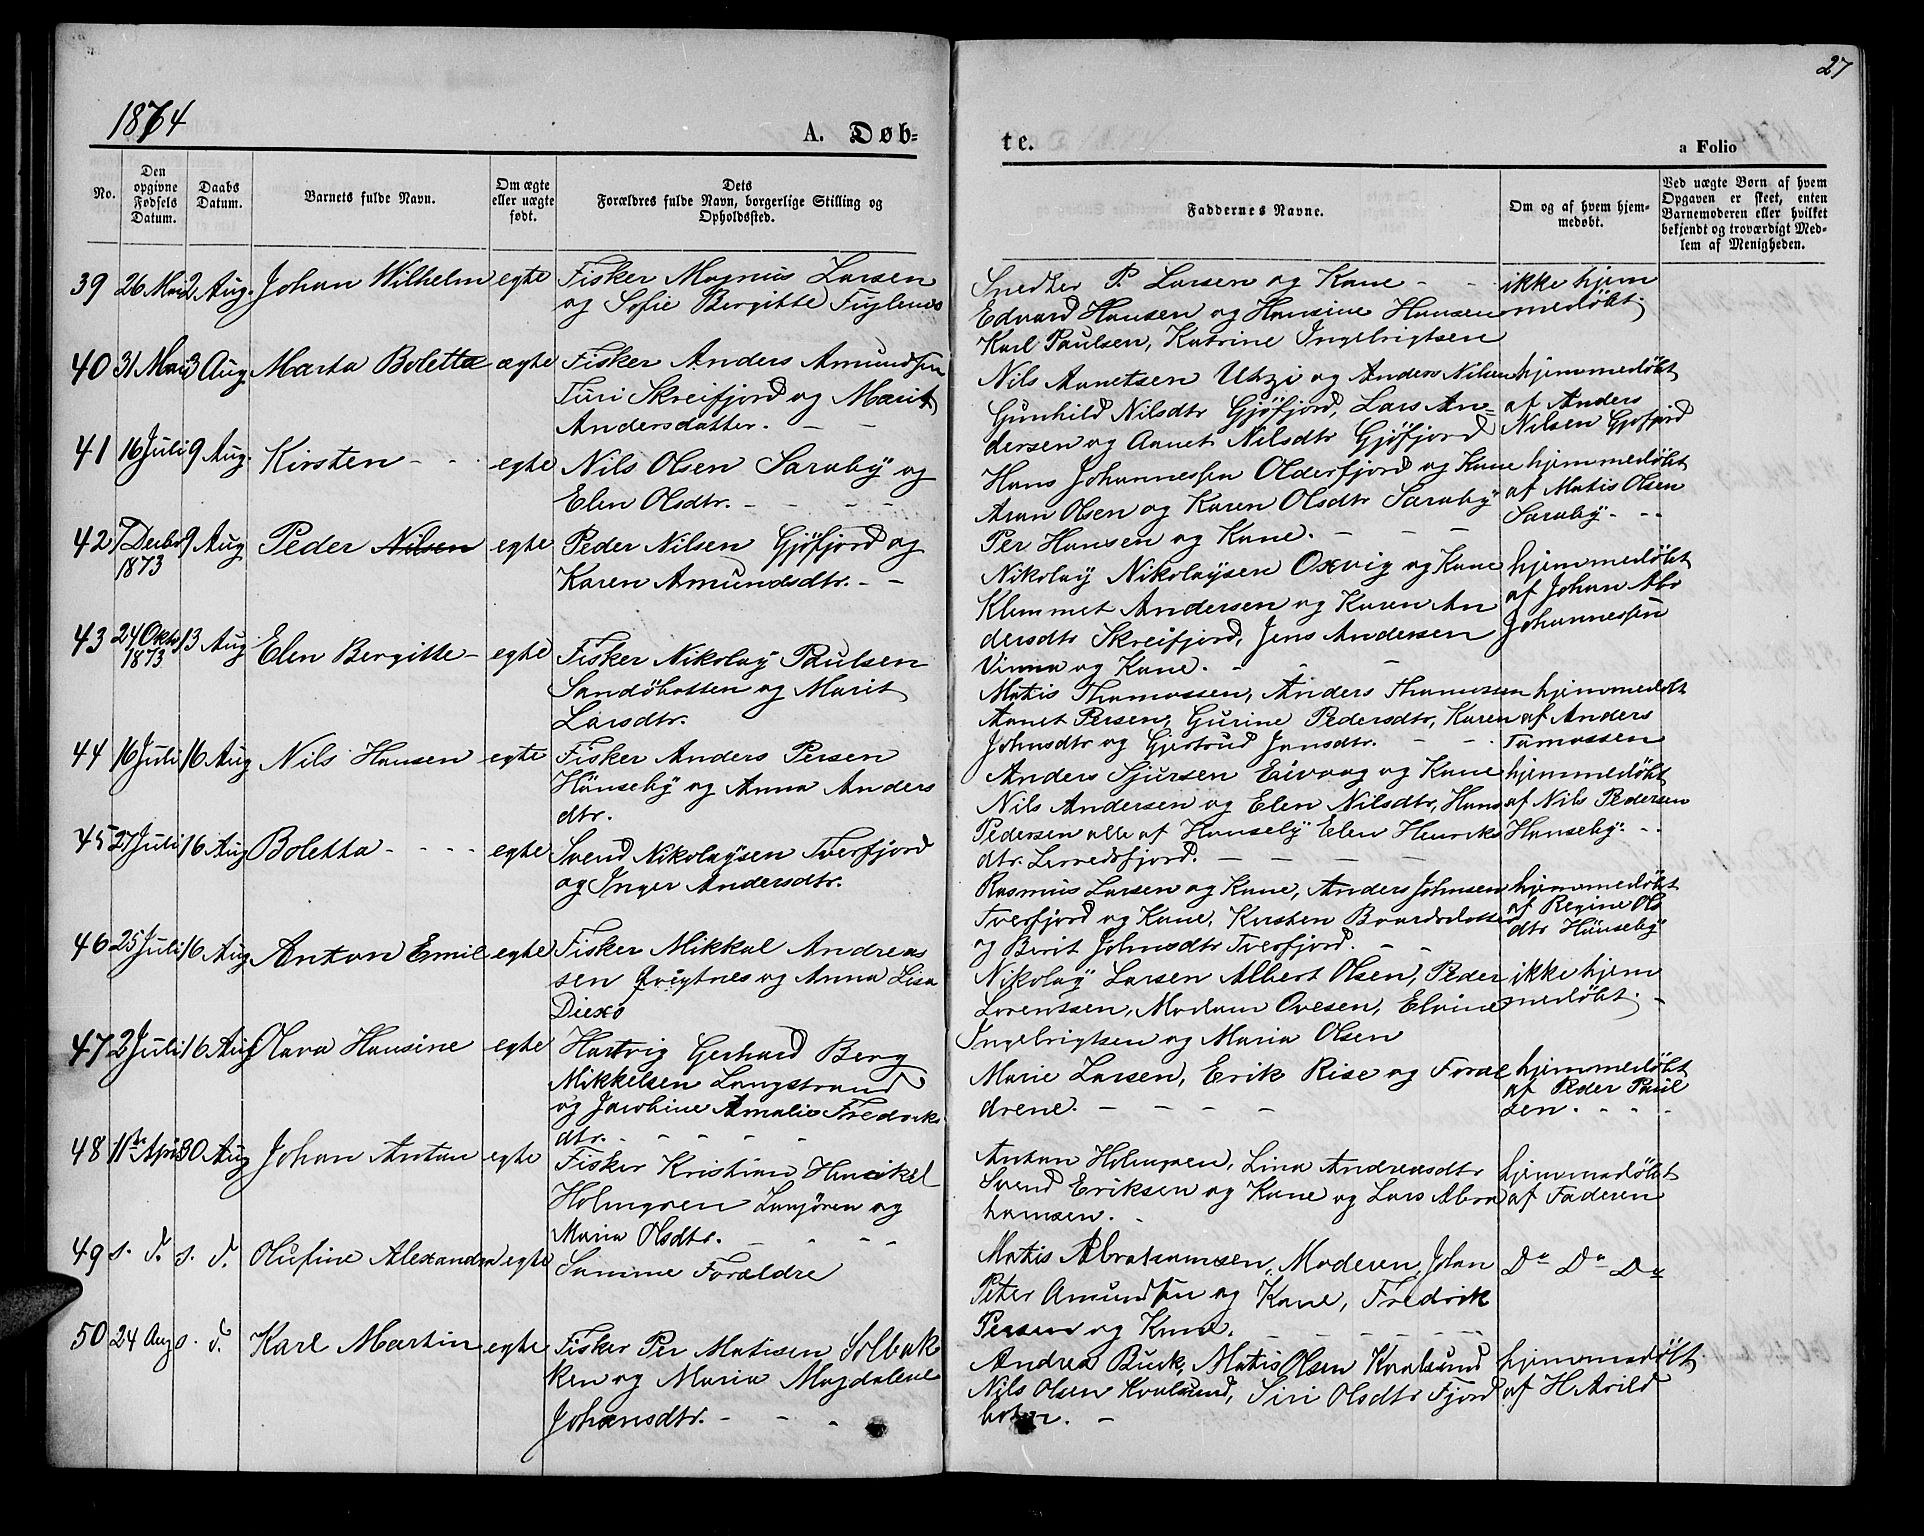 27
1874
A. Døb-
te.
a Folio
No.
Den opgivne Fødsels Datum.
Daabs Datum.
Barnets fulde Navn.
Om ægte eller uægte født.
Dets Forældres fulde Navn, borgerlige Stilling og Opholdssted.
Faddernes Navne.
Om og af hvem hjem-
medøbt.
Ved uægte Børn af hvem
Opgaven er skeet, enten
Barnemoderen eller hvilket
bekjendt og troværdigt Med-
lem af Menigheden.
39 26 Mai 2 Aug. Johan Wilhelm egte Fisker Magnus Larsen
og Sofie Bergitte Fuglenes
Snedker P. Larsen og Kone - -
Edvard Hansen og Hansine Hansen
Karl Paulsen, Katrine Ingebrigtsen
ikke hjem
medøbt.
40 31 Mai 3 Aug. Marta Boletta ægte Fisker Anders Amundsen
Turi Skreifjord og Marit
Andersdatter. - -
Nils Aanetsen Utzi og Anders Nilsen
Gunhild Nilsdtr Gjøfjord, Lars An-
dersen og Aanet Nilsdtr Gjøfjord
hjemmedøbt
af Anders
Nilsen Gjøfjord
41 16 Juli 9 Aug. Kirsten - - egte Nils Olsen Saraby og
Elen Olsdtr. - - - -
Hans Johannessen Olderfjord og Kone
Aran Olsen og Karen Olsdtr Saraby
Per Hansen og Kone. - - -
hjemmedøbt
af Matis Olsen
Saraby - - -
42 7 Decbr 1873 9 Aug Peder Nilsen egte Peder Nilsen Gjøfjord og
Karen Amundsdtr. - -
Nikolay Nikolaysen Oxvig og Kone
Klemmet Andersen og Karen An
dersdtr Skreifjord, Jens Andersen
Vinna og Kone. - - -
hjemmedøbt
af Johan Abr
Johannessen
43 24 Oktb 1873 13 Aug Elen Bergitte - egte Fisker Nikolay Paulsen
Sandøbotten og Marit
Larsdtr.
Matis Thomassen, Anders Thomassen
Aanet Persen, Gurine Pedersdtr, Karen
Johnsdtr og Gjertrud Jonsdtr. - -
hjemmedøbt
af Anders
Tomassen
44 16 Juli 16 Aug Nils Hansen egte Fisker Anders Persen
Hönseby og Anna Anders
dtr.
Anders Sjursen Eivaag og Kone
Nils Andersen og Elen Nilsdtr, Hans
Pedersen alle af Hønseby Elen Henriks
dtr. Lerredsfjord. - - - -
hjemmedøbt
af Nils Pedersen
Hanseby - -
45 27 Juli 16 Aug Boletta - - - - egte Svend Nikolaysen Tverfjord
og Inger Andersdtr.
Rasmus Larsen og Kone, Anders Johnsen
Tverfjord og Kone, Kirsten Baardsdatter
og Berit Johnsdtr Tverfjord. - -
hjemmedøbt
af Regine Ols
dtr Hönseby
46 25 Juli 16 Aug Anton Emil egte Fisker Mikkal Andreas
sen Qvigtnes og Anna Lisa
Diexo
Nikolay Larsen Albert Olsen, Peder
Lorentsen, Madam Ovesen, Elvine
Ingebrigtsen og Maria Olsen
ikke hjem
medøbt. -
47 2 Juli 16 Aug Olava Hansine egte Hartvig Gerhard Berg
Mikkelsen Langstrand
og Jacobine Amalie Fredriks
dtr. - - - -
Marie Larsen, Erik Rise og Foræl
drene. - - - -
hjemmedøbt
af Peder Paul
sen. - - -
48 11te April 30 Aug Johan Anton egte Fisker Kristian Heneikel
Holmgren Langören og
Maria Olsdtr. - - - -
Antan Holmgren, Lina Andreasdtr
Svend Eriksen og Kone og Lars Abra
hamsen. -
hjemmedøbt
af Faderen
49 s. d. s. d. Olufine Alexandra egte Samme Forældre
Matis Abrahamsen, Moderen, Johan
Peter Amundsen og Kone, Fredrik
Persen og Kone. - - - - -
Do Do Do
50 24 Aug s. d. Karl Martin egte Fisker Per Matisen Solbak
ken og Maria Magdalene
Johansdtr. - - -
Andrea Buck, Matis Olsen Kvalsund
Nils Olsen Kvalsund, Siri Olsdtr Fjord
botn. -
hjemmedøbt
af H Arild